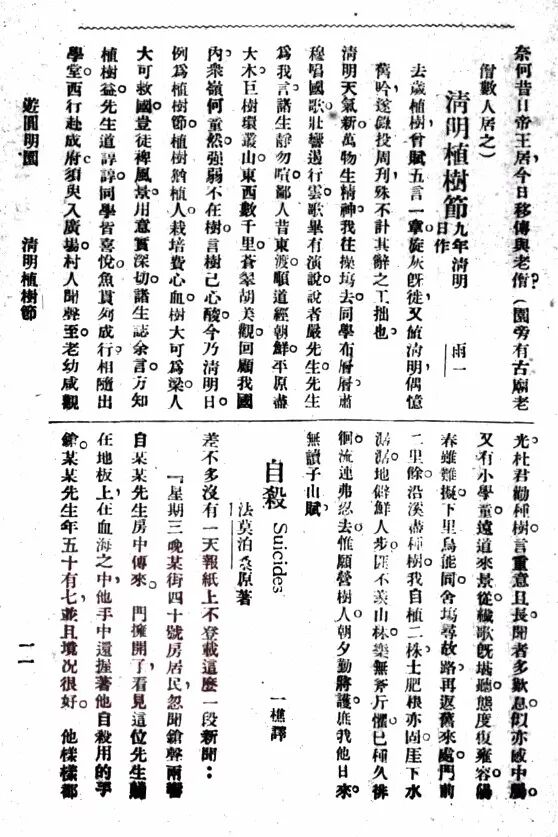 奈何昔日帝王居，今日移傳與老僧？（園旁有古廟老
僧數人居之）
清明植樹節 九年清明日作 雨一
去歲植樹，曾賦五言一章。旋灰旣徙，又值清明，偶憶
舊吟，遂錄投周刊，殊不計其辭之工拙也。
清明天氣新，萬物生精神。我往操塲去，同學布層層。肅
穆唱國歌，壯響遏行雲。歌畢有演說，說者嚴先生。先生
爲我言，諸生靜勿喧。鄙人昔東渡，順道經朝鮮。平原盡
大木，巨樹環叢山。東西數千里，蒼翠胡美觀。回顧我國
內，衆嶺何童然。強弱不在樹，言樹己心酸。今乃清明日，
例爲植樹節。植樹猶植人，栽培費心血。樹大可爲梁，人
大可救國。豈徒裨風景，用意實深切。諸生誌余言，方知
植樹益。先生道諄諄，同學皆喜悅。魚貫列成行，相隨出
學堂。西行赴成府，須臾入廣場。村人聞聲至，老幼咸觀
光。杜君勸種樹，言重意且長。聞者多歎息，似亦感中腸。
又有小學童，遠道來景從。歌旣堪聽，態度復雍容。陽
春雖難擬，下里烏能同。舍塢尋故路，再返舊來處。門前
二里餘，沿溪盡種樹。我自植二株，土肥根亦固。厓下水
潺潺，地僻鮮人步。匪不羨山林，樂無斧斤懼。已種久徘
徊，流連弗忍去。惟願營樹人，朝夕勤將護。庶我他日來，
無讀子山賦。
自殺 Suicides
法莫泊桑原著 一樵譯
差不多沒有一天報紙上不登載這麽一段新聞：
『星期三晚某街四十號房居民，忽聞鎗聲兩響
自某某先生房中傳來。門擁開了，看見這位先生躺
在地板上，在血海之中，他手中還握著他自殺用的手
鎗。某某先生年五十有七，並且境况很好。他樣樣都
遊圓明園 清明植樹節 一一